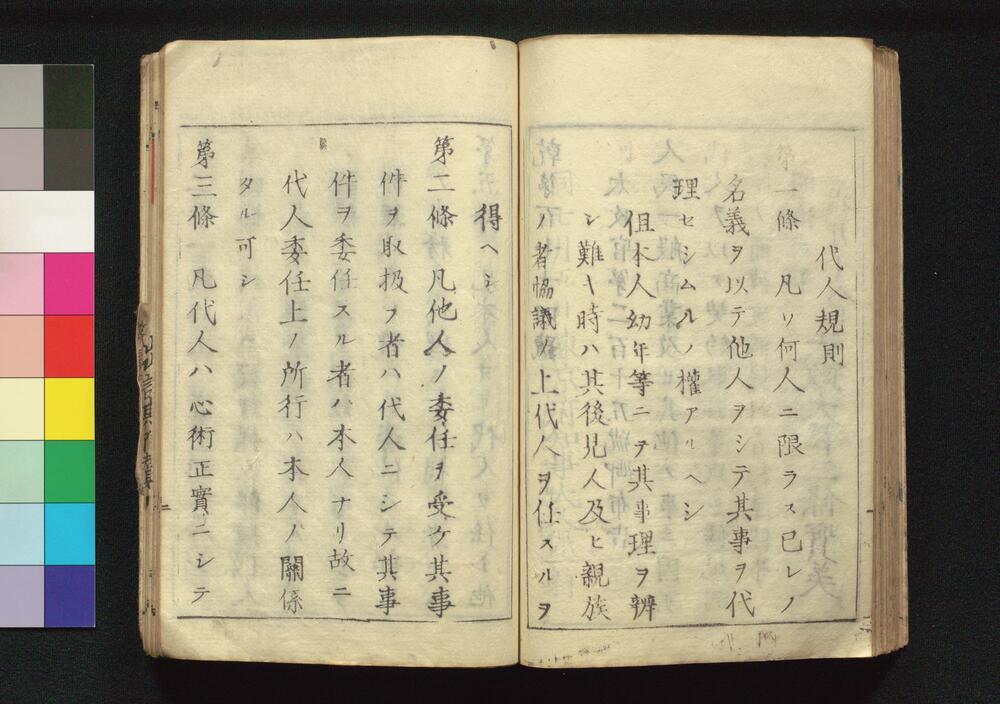 代人規則
第一條 凡ソ何人ニ限ラス已レノ
名義ヲ以テ他人ヲシテ其事ヲ代
理セシムルノ權アルヘシ
伹本人幼年等ニヲ其事理ヲ辨
シ難キ時ハ其後見人及ヒ親族
ノ者協議ノ上代人ヲ任スルヲ
得ヘシ
第二條 凡他人ノ委任ヲ受ケ其事
件ヲ取扱フ者ハ代人ニシテ其事
件ヲ委任スル者ハ本人ナリ故ニ
代人委任上ノ所行ハ本人ノ關係
タル可シ
第三條 凡代人ハ心術正實ニシテ